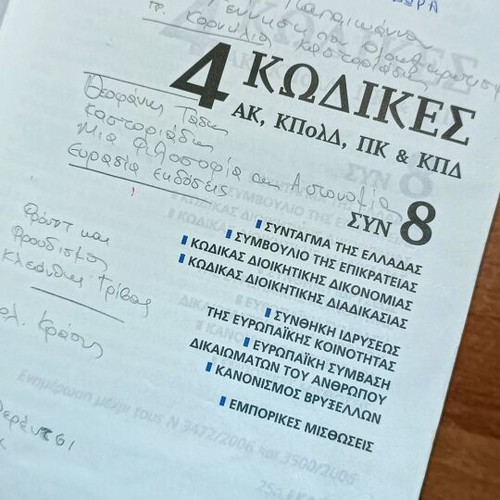 ΩΡΑ
Καστοριάδης
4 ΚΩΔΙΚΕΣ
ΑΚ, ΚΠολΔ, ΠΚ & ΚΠΔ
Θεοφάνης Τάσης
Καστοριάδης
Μια Φιλοσοφία της Αυτονομίας
Ευρασία Εκδόσεις
ΣΥΝ 8
ΣΥΝΤΑΓΜΑ ΤΗΣ ΕΛΛΑΔΑΣ
ΣΥΜΒΟΥΛΙΟ ΤΗΣ ΕΠΙΚΡΑΤΕΙΑΣ
ΚΩΔΙΚΑΣ ΔΙΟΙΚΗΤΙΚΗΣ ΔΙΚΟΝΟΜΙΑΣ
ΚΩΔΙΚΑΣ ΔΙΟΙΚΗΤΙΚΗΣ ΔΙΑΔΙΚΑΣΙΑΣ
ΣΥΝΘΗΚΗ ΙΔΡΥΣΕΩΣ
ΤΗΣ ΕΥΡΩΠΑΪΚΗΣ ΚΟΙΝΟΤΗΤΑΣ
ΕΥΡΩΠΑΪΚΗ ΣΥΜΒΑΣΗ
ΔΙΚΑΙΩΜΑΤΩΝ ΤΟΥ ΑΝΘΡΩΠΟΥ
ΚΑΝΟΝΙΣΜΟΣ ΒΡΥΞΕΛΛΩΝ
ΕΜΠΟΡΙΚΕΣ ΜΙΣΘΩΣΕΙΣ
Φρόυντ και
Φροϋδισμός
Κλεάνθης Γρίβας
Ενημέρωση μέχρι τους Ν 3472/2006 και 3500/2006